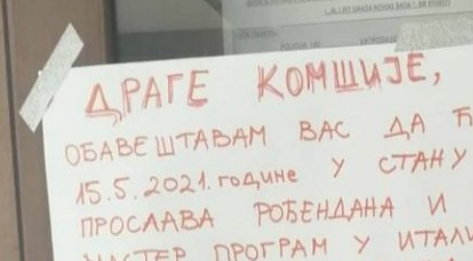 ДРАГЕ КОМШИЈЕ,
ОБАВЕШТАВАМ ВАС ДА Ћ
15.5.2021. године У СТАНУ
ПРОСЛАВА РОЂЕНДАНА И
МАСТЕР ПРОГРАМ У ИТАЛИ